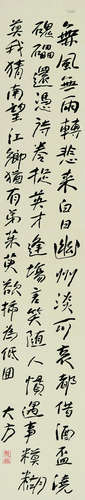 無風無雨轉悲來白日幽州淡可哀都借酒盃澆
磈礧還憑詩卷挹英才逢場言笑隨人慣遇事模糊
莫我猜南望江鄉猶有弟茱萸欲插為低回
大方